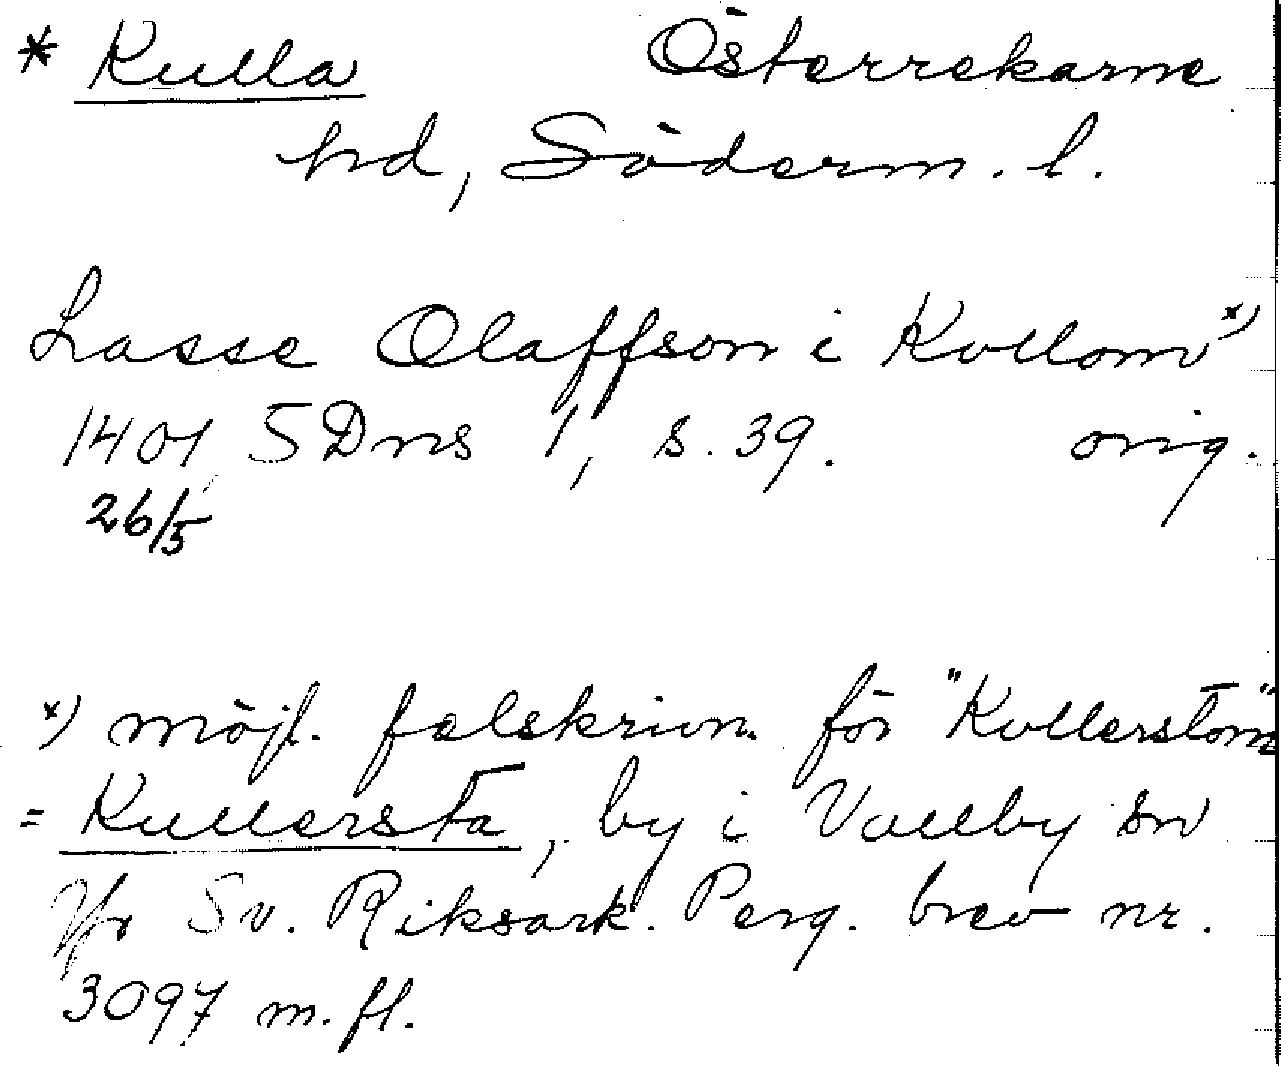 * Kulla Österrekarne
hd, Söderm. l.
Lasse Olaffson i Kullom x)
1401 SDns 1, s. 39. orig.
26/5
x) möjl. felskrivn. för "Kullerstom"
= Kullersta, by i Vallby sn
Jfr Sv. Riksark. Perg. brev nr.
3097 m. fl.